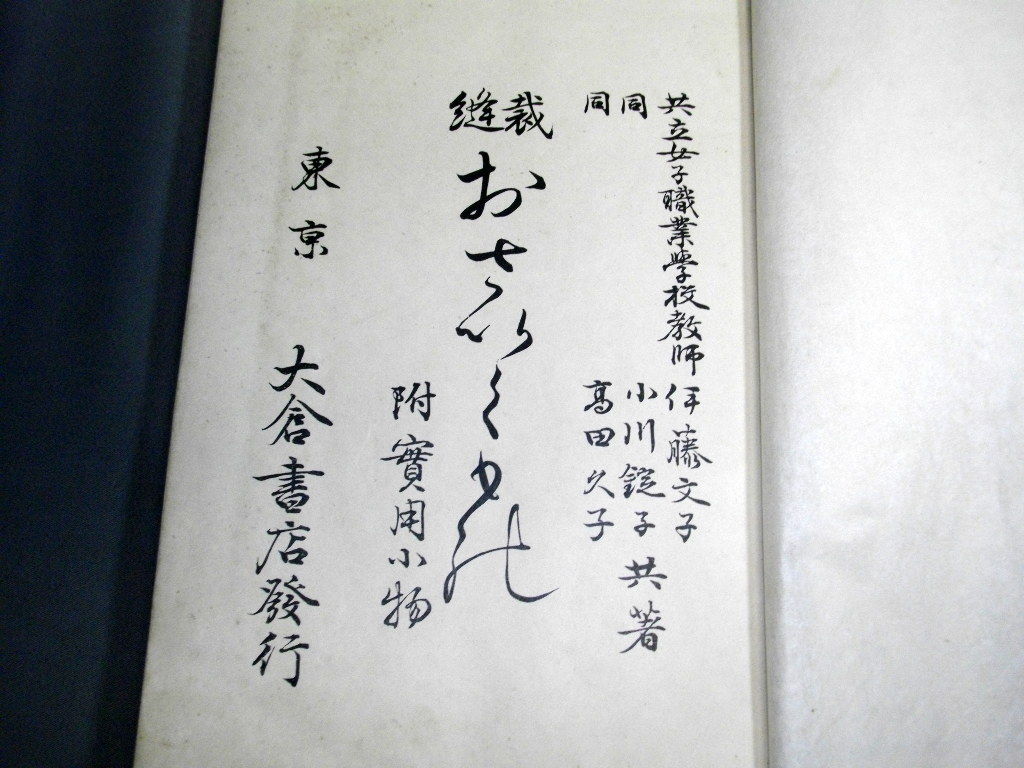 共立女子職業學校教師 伊藤文子
同 小川錠子 共著
同 高田久子
裁縫 おさいくもの
附實用小物
東京 大倉書店發行